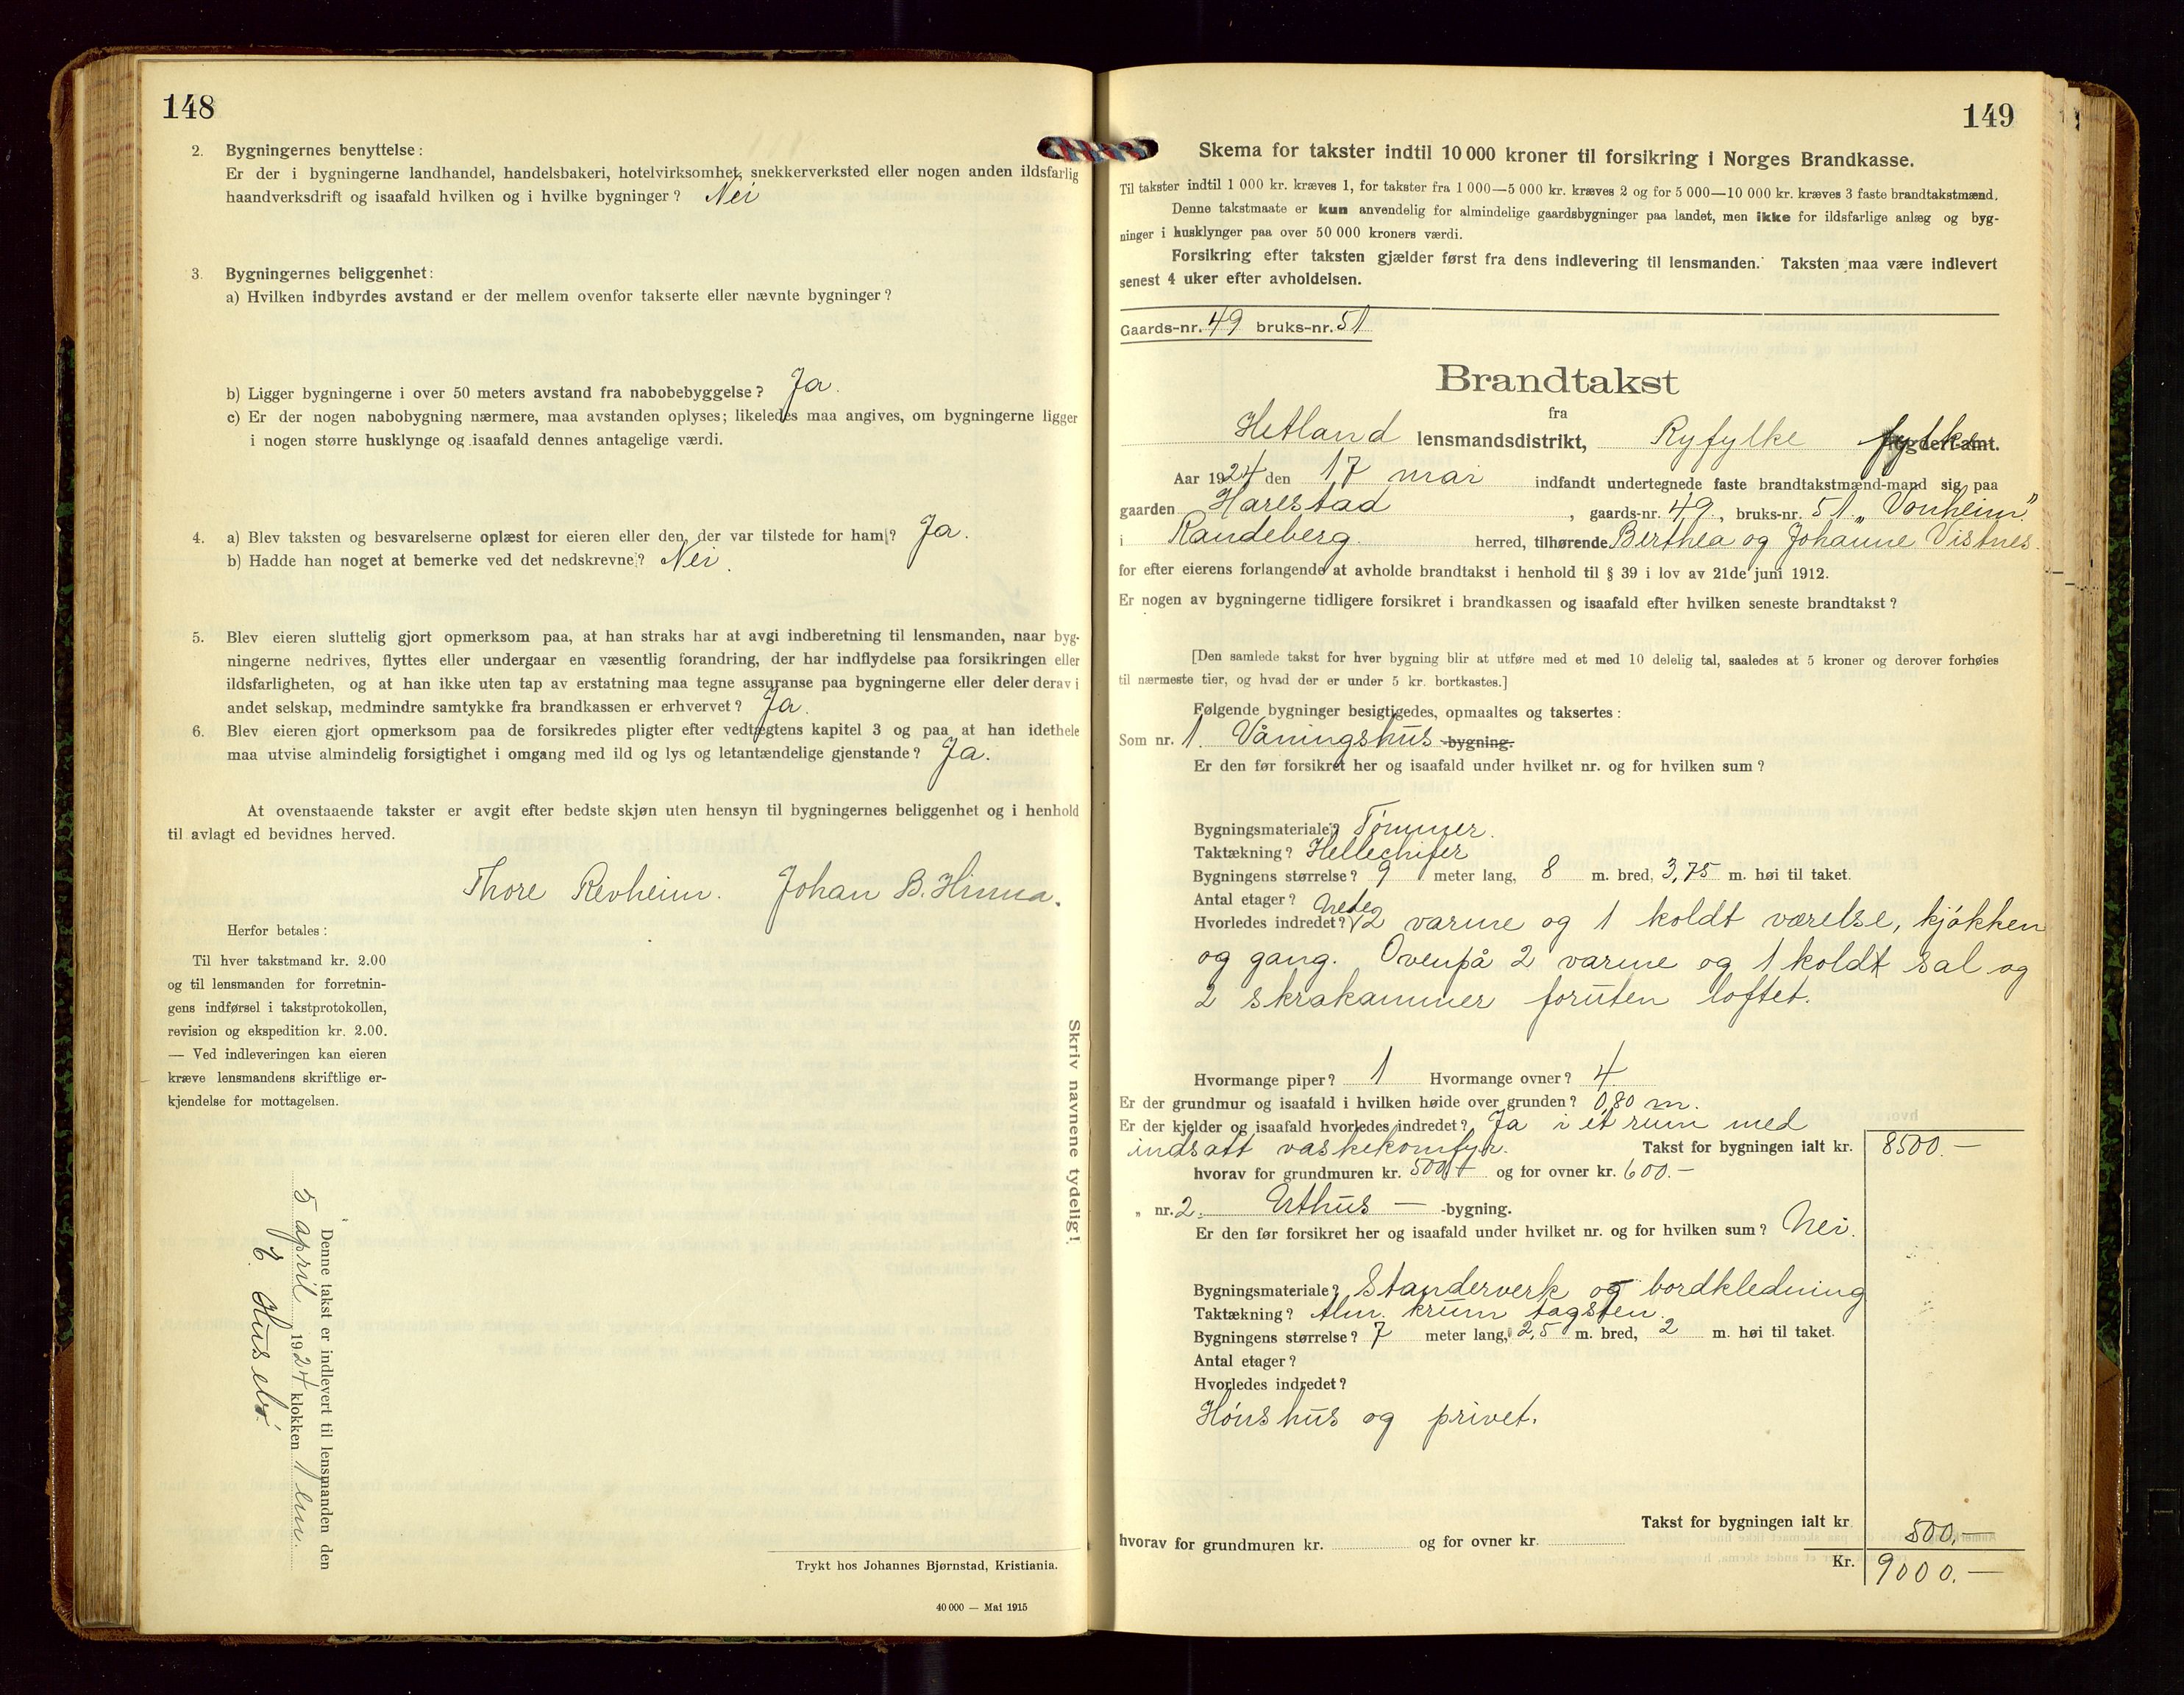 148
2. Bygningernes benyttelse:
Er der i bygningerne landhandel, handelsbakeri, hotelvirksomhet, snekkerverksted eller nogen anden ildsfarlig
haandverksdrift og isaafald hvilken og i hvilke bygninger? Nei
3. Bygningernes beliggenhet:
a) Hvilken indbyrdes avstand er der mellem ovenfor takserte eller nævnte bygninger?
b) Ligger bygningerne i over 50 meters avstand fra nabobebyggelse? Ja.
c) Er der nogen nabobygning nærmere, maa avstanden oplyses; likeledes maa angives, om bygningerne ligger
i nogen større husklynge og isaafald dennes antagelige værdi.
4. a) Blev taksten og besvarelserne oplæst for eieren eller den, der var tilstede for ham? Ja.
b) Hadde han noget at bemerke ved det nedskrevne? Nei.
5. Blev eieren sluttelig gjort opmerksom paa, at han straks har at avgi indberetning til lensmanden, naar byg-
ningerne nedrives, flyttes eller undergaar en væsentlig forandring, der har indflydelse paa forsikringen eller
ildsfarligheten, og at han ikke uten tap av erstatning maa tegne assuranse paa bygningerne eller deler derav i
andet selskap, medmindre samtykke fra brandkassen er erhvervet? Ja.
6. Blev eieren gjort opmerksom paa de forsikredes pligter efter vedtægtens kapitel 3 og paa at han idethele
maa utvise almindelig forsigtighet i omgang med ild og lys og letantændelige gjenstande? Ja.
At ovenstaaende takster er avgit efter bedste skjøn uten hensyn til bygningernes beliggenhet og i henhold
til avlagt ed bevidnes herved.
Thore Revheim. Johan B. Hinna.
Herfor betales:
Til hver takstmand kr. 2.00
og til lensmanden for forretnin-
gens indførsel i takstprotokollen,
revision og ekspedition kr. 2.00.
— Ved indleveringen kan eieren
kræve lensmandens skriftlige er-
kjendelse for mottagelsen.
Skriv navnene tydelig!
Denne takst er indlevert til lensmanden den
5 april 1924 klokken 1 em.
E. Husebø.
Trykt hos Johannes Bjørnstad, Kristiania.
40 000 — Mai 1915
149
Skema for takster indtil 10 000 kroner til forsikring i Norges Brandkasse.
Til takster indtil 1 000 kr. kræves 1, for takster fra 1 000—5 000 kr. kræves 2 og for 5 000—10 000 kr. kræves 3 faste brandtakstmænd.
Denne takstmaate er kun anvendelig for almindelige gaardsbygninger paa landet, men ikke for ildsfarlige anlæg og byg-
ninger i husklynger paa over 50 000 kroners værdi.
Forsikring efter taksten gjælder først fra dens indlevering til lensmanden. Taksten maa være indlevert
senest 4 uker efter avholdelsen.
Gaards-nr. 49 bruks-nr. 51
Brandtakst
fra
Hetland lensmandsdistrikt, Ryfylke fylke
Aar 1924 den 17 mai indfandt undertegnede faste brandtakstmænd-mand sig paa
gaarden Harestad, gaards-nr. 49, bruks-nr. 51 „Vonheim"
i Randeberg herred, tilhørende Berthea og Johanne Vistnes.
for efter eierens forlangende at avholde brandtakst i henhold til § 39 i lov av 21de juni 1912.
Er nogen av bygningerne tidligere forsikret i brandkassen og isaafald efter hvilken seneste brandtakst?
[Den samlede takst for hver bygning blir at utføre med et med 10 delelig tal, saaledes at 5 kroner og derover forhøies
til nærmeste tier, og hvad der er under 5 kr. bortkastes.]
Følgende bygninger besigtigedes, opmaaltes og taksertes:
Som nr. 1. Våningshus -bygning.
Er den før forsikret her og isaafald under hvilket nr. og for hvilken sum?
Bygningsmateriale? Tømmer.
Taktækning? Hellechifer
Bygningens størrelse? 9 meter lang, 8 m. bred, 3,75 m. høi til taket.
Antal etager?
Hvorledes indredet? Nede 2 varme og 1 koldt værelse, kjøkken
og gang. Ovenpå 2 varme og 1 koldt sal og
2 skrakammer foruten loftet.
Hvormange piper? 1 Hvormange ovner? 4
Er der grundmur og isaafald i hvilken høide over grunden? 0,80 m.
Er der kjelder og isaafald hvorledes indredet? Ja i et rum med
indsatt vaskekomfyr. Takst for bygningen ialt kr. 8500.—
hvorav for grundmuren kr. 500.— og for ovner kr. 600.—
„ nr. 2. Uthus — -bygning.
Er den før forsikret her og isaafald under hvilket nr. og for hvilken sum? Nei.
Bygningsmateriale? Standerverk og bordkledning
Taktækning? Alm. krum tagsten.
Bygningens størrelse? 7 meter lang, 2,5 m. bred, 2 m. høi til taket.
Antal etager?
Hvorledes indredet?
Hønshus og privet.
Takst for bygningen ialt kr. 500.—
hvorav for grundmuren kr. og for ovner kr.
Kr. 9000.—